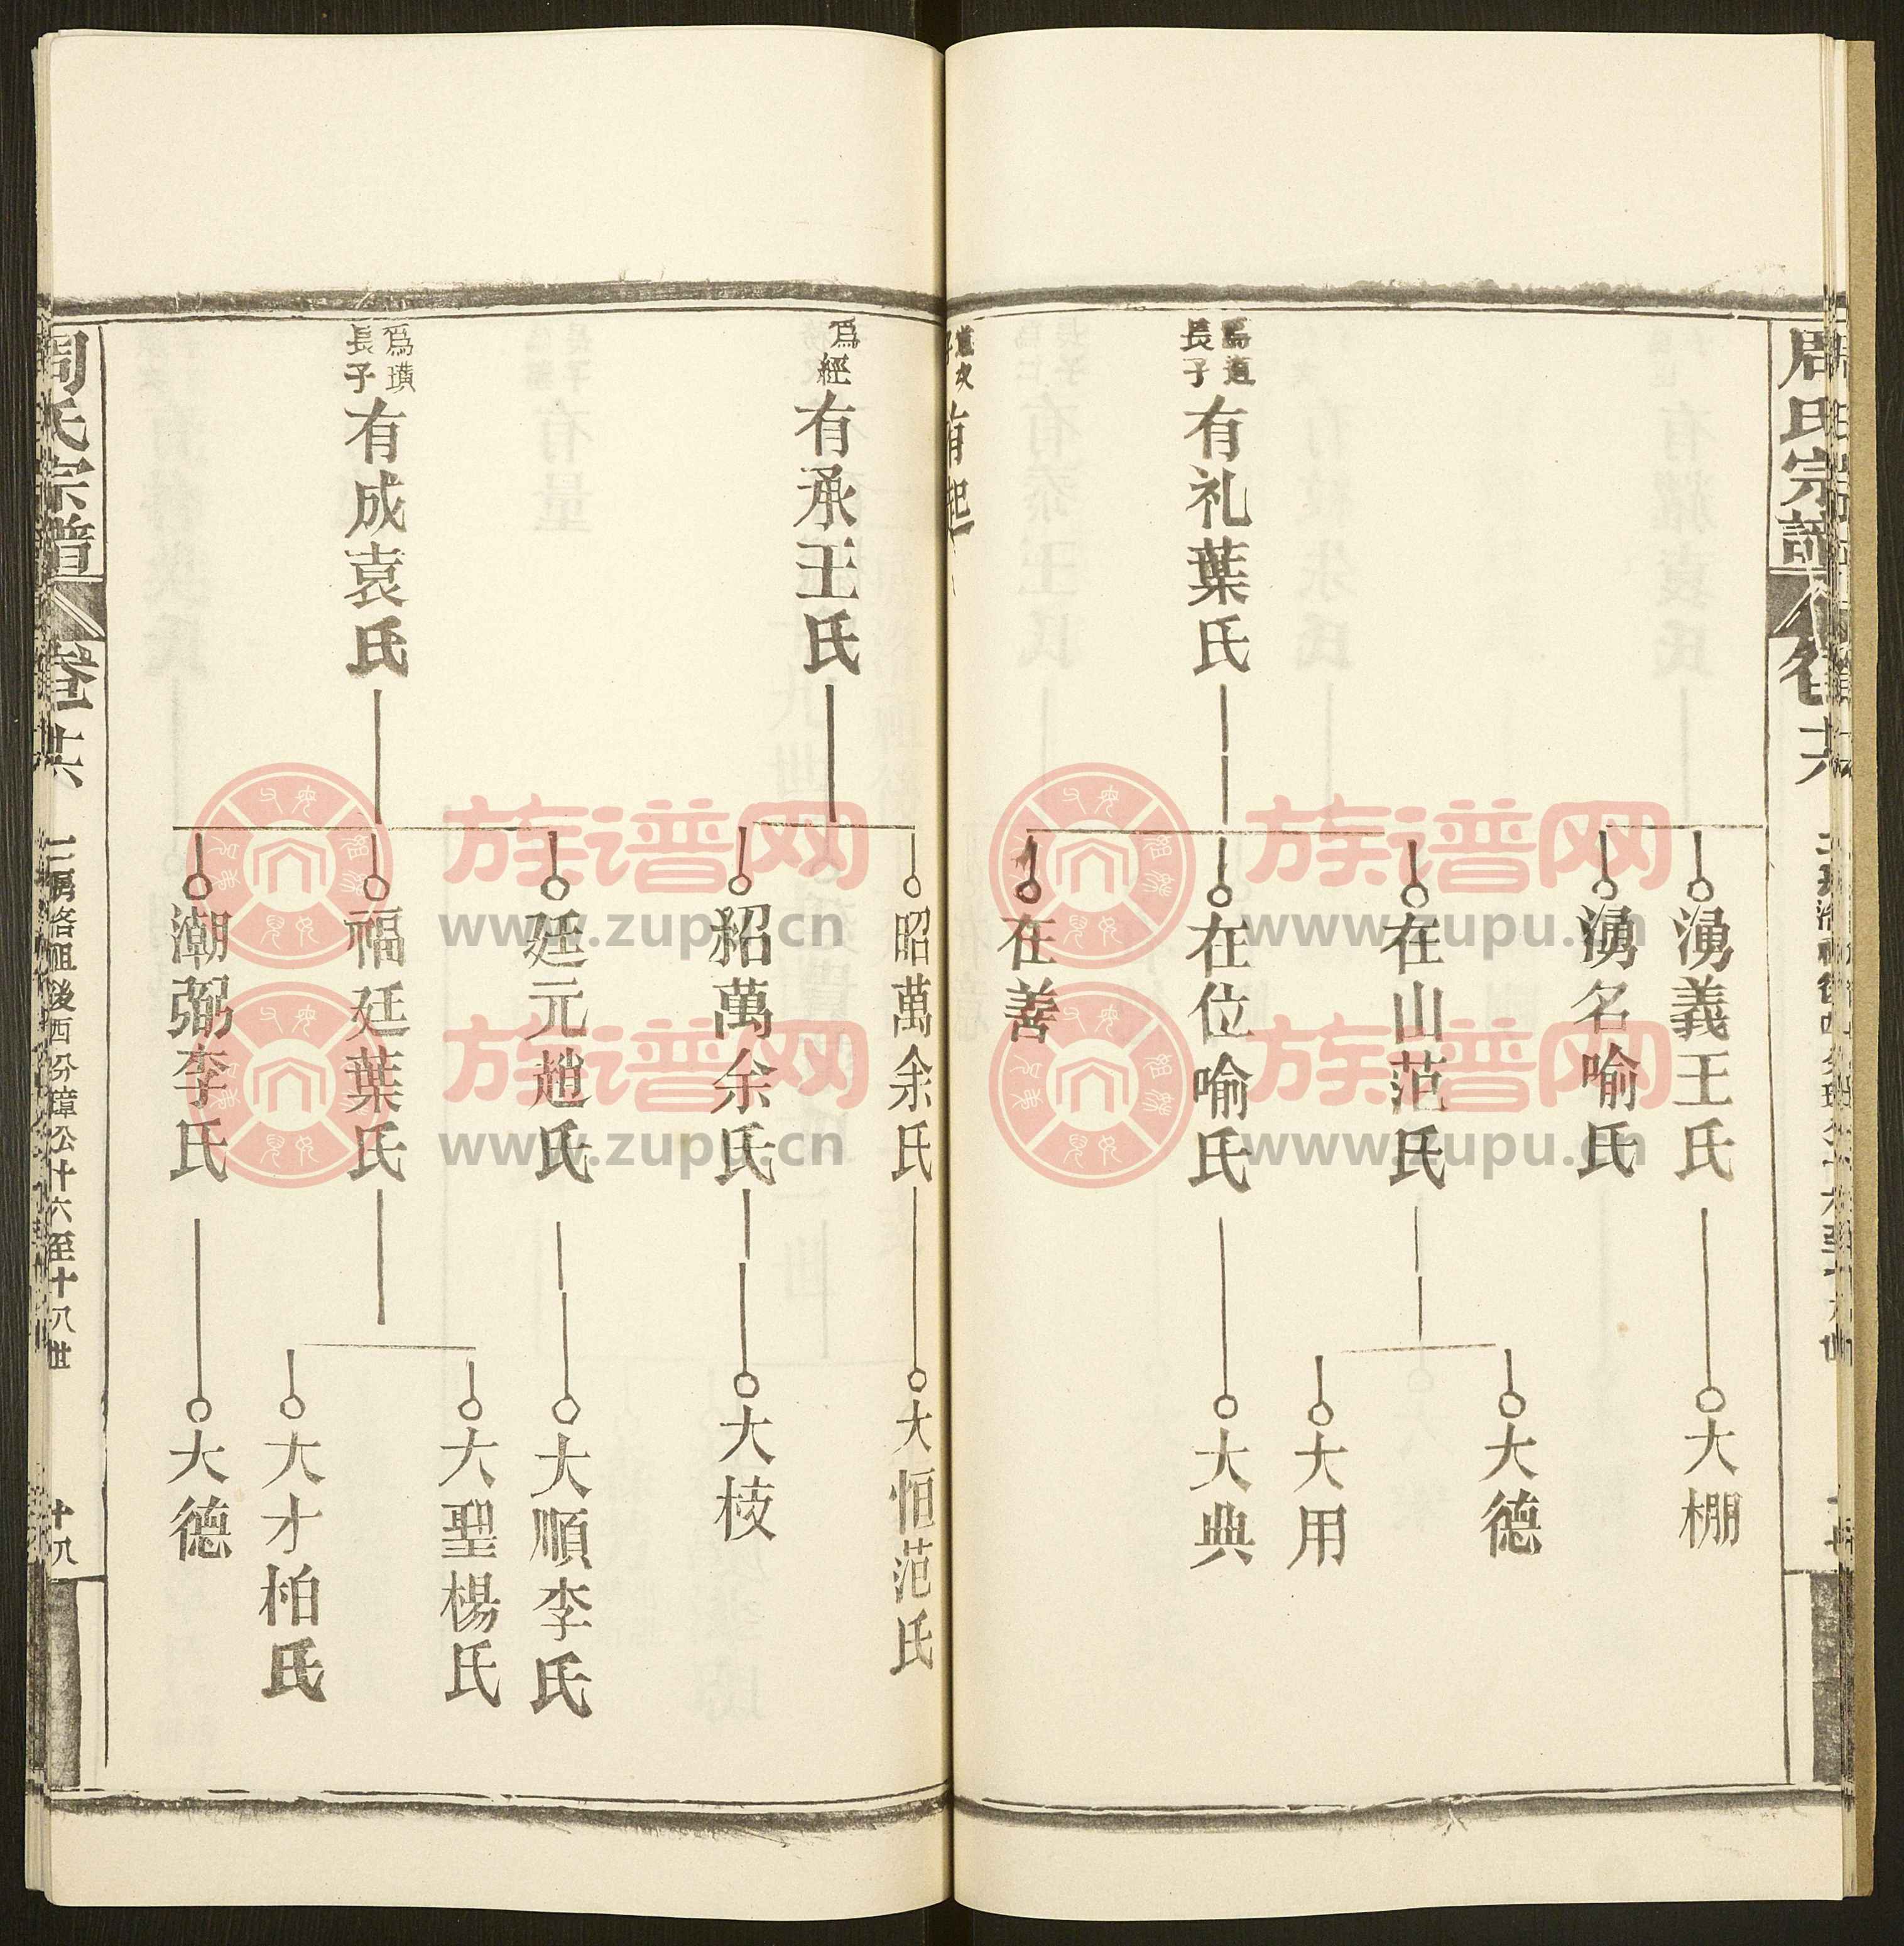 周氏宗譜
卷
十六
湧義王氏
大棚
湧名喻氏
爲道
長子
有礼葉氏
在山范氏
大德
大用
在位喻氏
大典
在善
有起
爲經
有承王氏
昭萬余氏
大恒范氏
紹萬余氏
大枝
爲璜
長子
有成袁氏
廷元趙氏
大順李氏
福廷葉氏
大聖楊氏
大才柏氏
潮弼李氏
大德
周氏宗譜
卷
十六
祖後西分璋公十六至十八世
十八
族谱网
www.zupu.cn
族谱网
www.zupu.cn
族谱网
www.zupu.cn
族谱网
www.zupu.cn